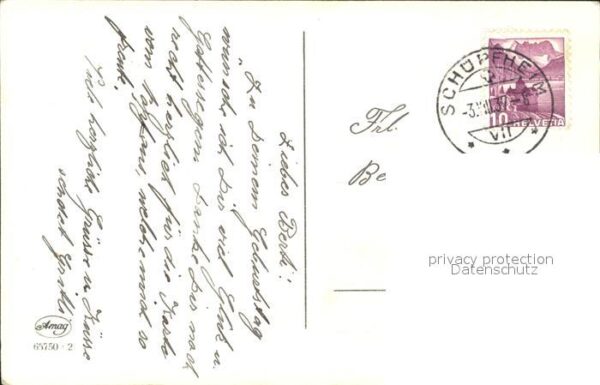 Liebes Berti!
"Zu Deinem Geburtstag
wünsche ich Dir viel Glück u.
Gottessegen. Danke Dir noch
recht herzlich für die Karte
vom welche mich so
freute.
Viele herzliche Grüsse u. Küsse
sendet
Amag
65750 - 2
Frl.
Be
SCHÜPFHEIM
VII
10
HELVETIA
privacy protection
Datenschutz